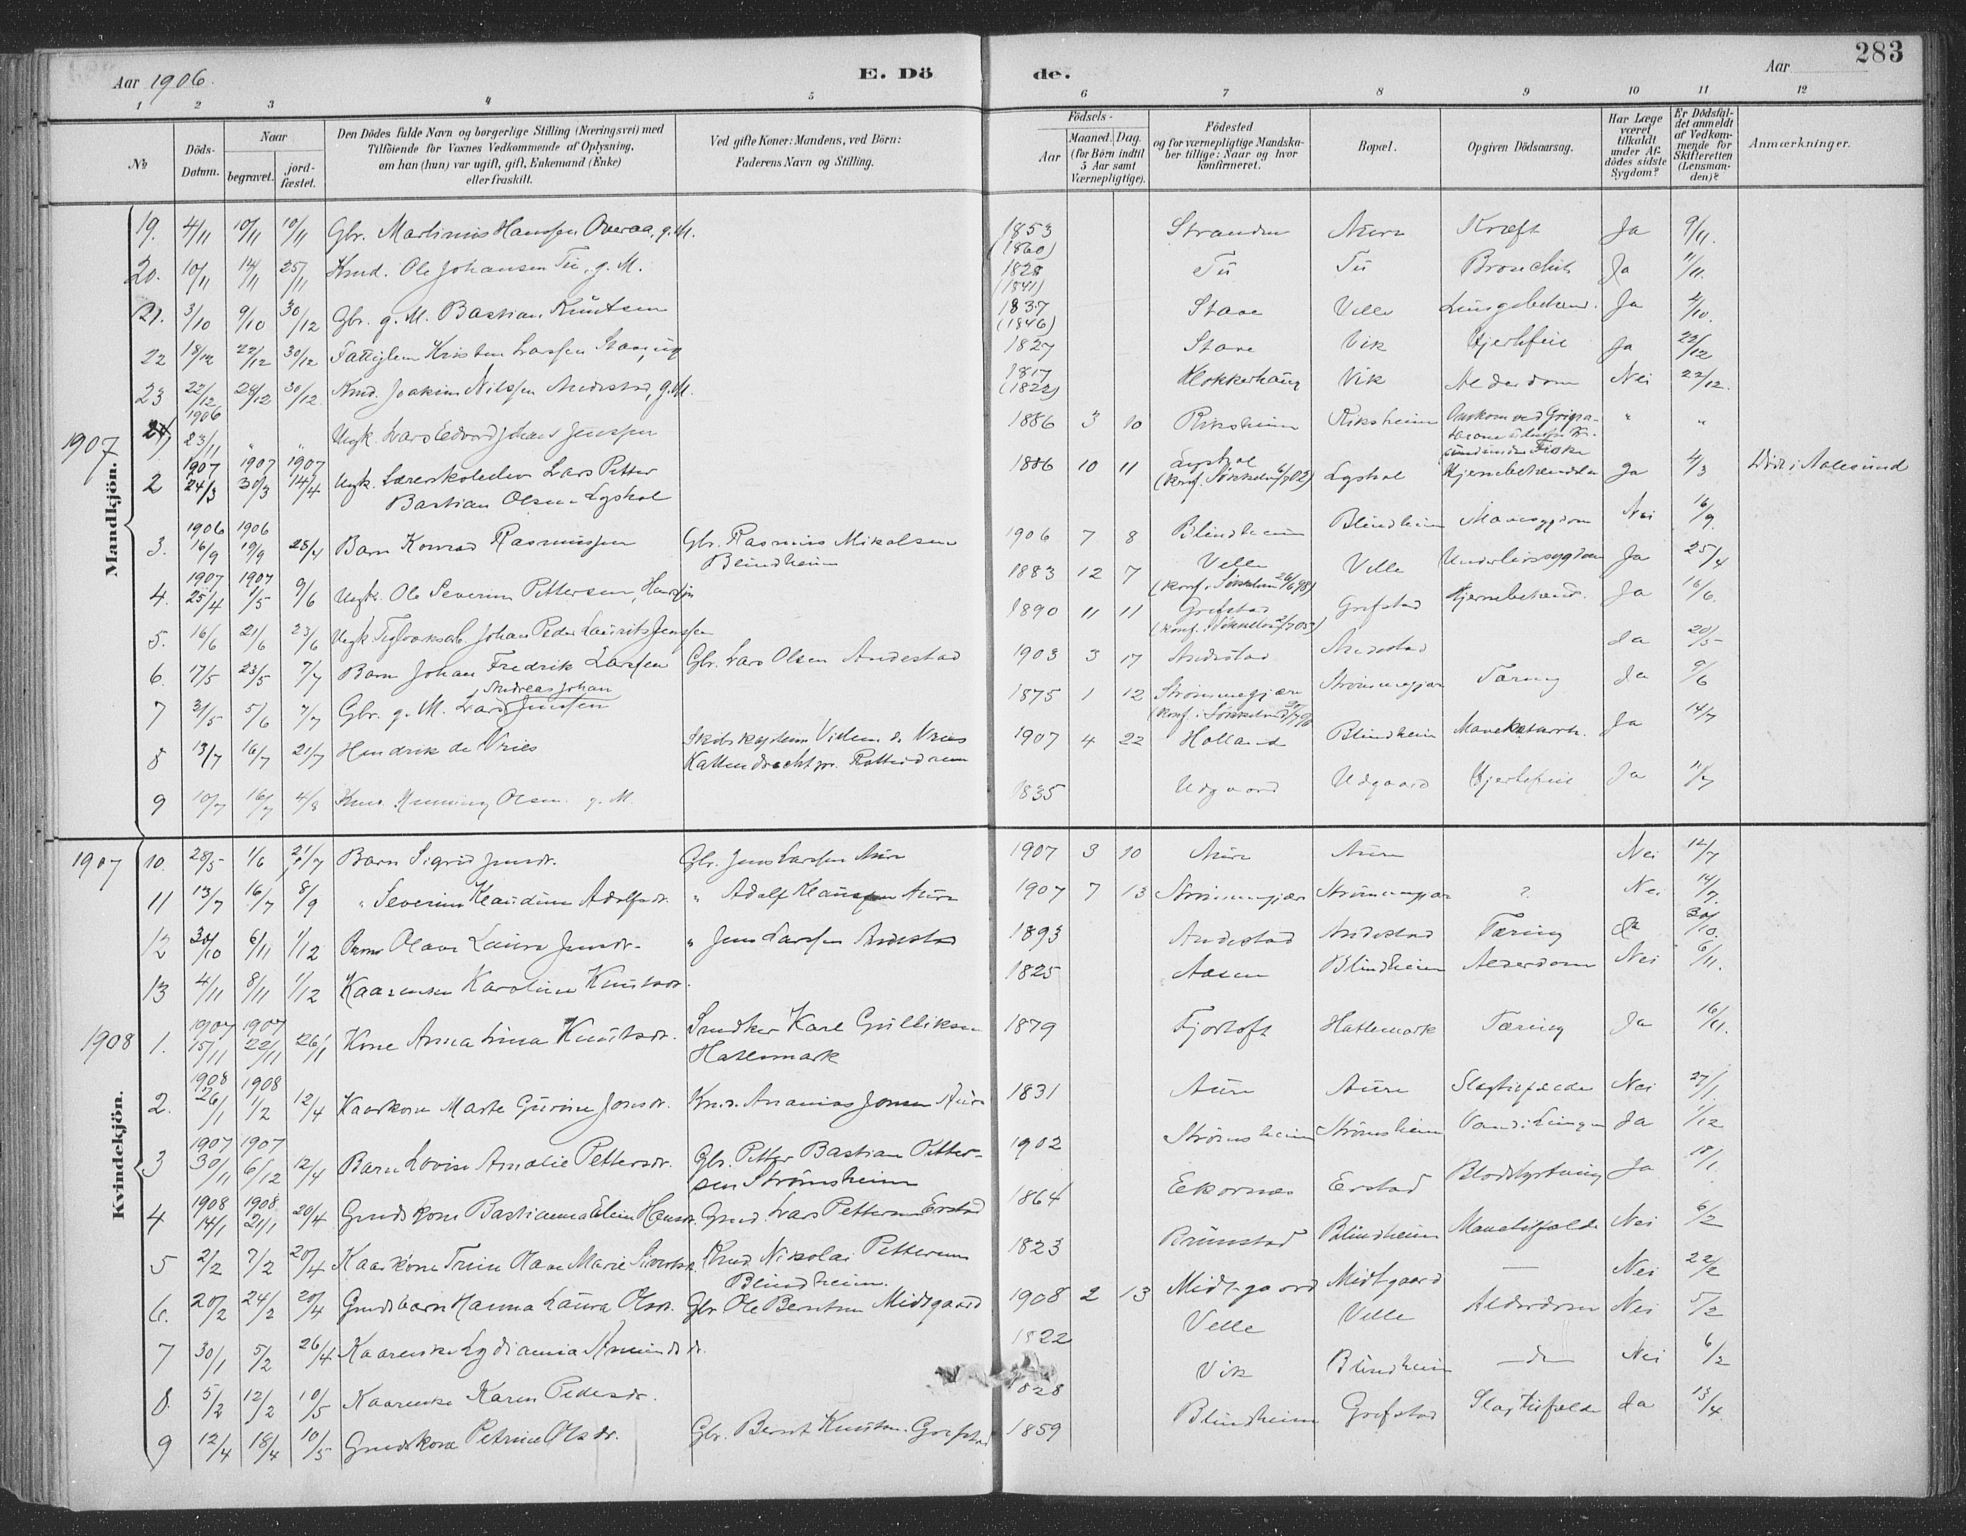 283
Aar 1906.
E. Dö de.
Aar
1 2 3 4 5 6 7 8 9 10 11 12
№
Döds-Datum.
Naar
begravet.
jord-fæstet.
Den Dödes fulde Navn og borgerlige Stilling (Næringsvei) med
Tilföiende for Voxnes Vedkommende af Oplysning,
om han (hun) var ugift, gift, Enkemand (Enke)
eller fraskilt.
Ved gifte Koner: Mandens, ved Börn:
Faderens Navn og Stilling.
Födsels-
Aar
Maaned. Dag.
(for Börn indtil
5 Aar samt
Værnepligtige).
Födested
og for værnepligtige Mandska-
ber tillige: Naar og hvor
konfirmeret.
Bopæl.
Opgiven Dödsaarsag.
Har Læge
været
tilkaldt
under Af-
dödes sidste
Sygdom?
Er Dödsfal-
det anmeldt
af Vedkom-
mende for
Skifteretten
(Lensman-
den)?
Anmærkninger.
Mandkjön.
19. 4/11 10/11 10/11 Gbr. Martinus Hanssen Overaa, g. M. 1853 (1860) Stranden Aure Kræft Ja 9/11.
20. 10/11 14/11 25/11 Kaard. Ole Johansen Tu, g. M. 1828 (1841) Tu Tu Bronchit Ja 11/11.
21. 3/10 9/10 30/12 Gbr. g. M. Bastian Knutsen 1837 (1846) Stave Velle Lungebetænd. Ja 4/10.
22 18/12 22/12 30/12 Fattiglem Kristen Larssen 1827 Stave Vik Hjertefeil Ja 22/12
23 22/12 28/12 30/12. Kaard. Joakim Nilssen Andestad, g. M. 1817 (1822) Klokkerhaug Vik Alderdom Nei 22/12.
1907
1906 23/11 " " Ungk. Lars Edvard Johans Jenssen 1886 3 10 Riksheim Riksheim Omkom ved " "
2 1907 24/3 1907 30/3 1907 14/4 Ungk. Lærerskoleelev Lars Petter
Bastian Olsen Lyshol 1886 10 11 Lyshol Lyshol Hjernebetændelse Ja 4/3 Död i Aalesund
3. 1906 16/9 1906 19/9 28/4 Barn Konrad Rasmussen Gbr. Rasmus Mikalsen
Blindheim 1906 7 8 Blindheim Blindheim Mavesygdom Nei 16/9.
4. 1907 25/4 1907 1/5 9/6 Ungk. Ole Severin Pettersen, 1883 12 7 Velle Velle Underlivssygdom Ja 25/4
5. 16/6 21/6 23/6 Ungk. Johan Peder Laurits Jenssen 1890 11 11 Grefstad Grefstad Hjernebetænd. Ja 16/6.
6. 17/5 23/5 7/7 Barn Johan Fredrik Larssen Gbr. Lars Olsen Andestad 1903 3 17 Andestad Andestad Ja 20/5
7 31/5 5/6 7/7 Gbr. g. M. Lars Andreas Johan Jenssen 1875 1 12 Strømmegjær Strømmegjær Tæring Ja 9/6
8 13/7 16/7 21/7 Hendrik de Vries Skibskaptein Villem de Vries
Kattendrecht pr. Rotterdam 1907 4 22 Holland Blindheim Mavekatarrh. Ja 14/7
9 10/7 16/7 4/8 Henning Olsen g. M. 1835 Udgaard Udgaard Hjertefeil Ja 11/7
Kvindekjön.
1907
10. 28/5 1/6 21/7 Barn Sigrid Jensdr. Gbr. Jens Larssen Aure 1907 3 10 Aure Aure Nei 12/7
11 13/7 16/7 8/9 " Severine Klaudine Adolfsdr. " Adolf Klaussen Aure 1907 7 13 Strømmegjær Strømmegjær ? Nei 14/7.
12 30/10 6/11 1/12 Barn Olave Laura Jensdr. " Jens Larssen Andestad 1893 Andestad Andestad Tæring Ja 30/10.
13 4/11 8/11 1/12 Kaarenke Karoline Knutsdr. 1825 Aasen Blindheim Alderdom Nei 6/11.
1908
1. 1907 15/11 1907 22/11 26/1 Kone Anna Lina Knutsdr. Snedker Karl Gulliksen
Hatlemark 1879 Fjortoft Hatlemark Tæring Ja 16/11.
2. 1908 26/1 1908 1/2 12/4 Kaarkone Marte Gurine Jonsdr. Ananias Jonsen Aure 1831 Aure Aure Slagtilfælde Nei 27/1.
3 1907 30/11 1907 6/12 12/4 Barn Lovise Amalie Pettersdr. Gbr. Petter Bastian Petter-
sen Strømsheim 1902 Strømsheim Strømsheim Vand i Lungen Ja 1/12
4 1908 14/1 1908. 21/1 20/4 Gaardskone Bastianna Elen Hansdr. Gaard. Lars Pettersen Erstad 1864 Ekornæs Erstad Blodstyrtning Ja 18/1.
5 2/2 7/2 20/4 Kaarkone Trine Olave Marie Kaard Nikolai Pettersen
Blindheim. 1823 Brunstad Blindheim Mavetilfælde Nei 6/2
6. 20/2 24/2 20/4 Gaardsbarn Hanna Laura Olsdr. Gbr. Ole Berntsen Midtgaard 1908 2 13 Midtgaard Midtgaard — Nei 22/2
7 30/1 5/2 26/4 Kaarenke Lydianna 1822 Velle Velle Alderdom Nei 5/2
8. 5/2 12/2 10/5 Kaarenke Karen Pedersdr. 1828 Vik Blindheim —do— Nei 6/2
9 12/4 18/4 10/5 Gaardskone Petrine Olsdr. Gbr. Bernt Knutsen Grefstad 1859 Blindheim Grefstad Slagtilfælde Ja 13/4